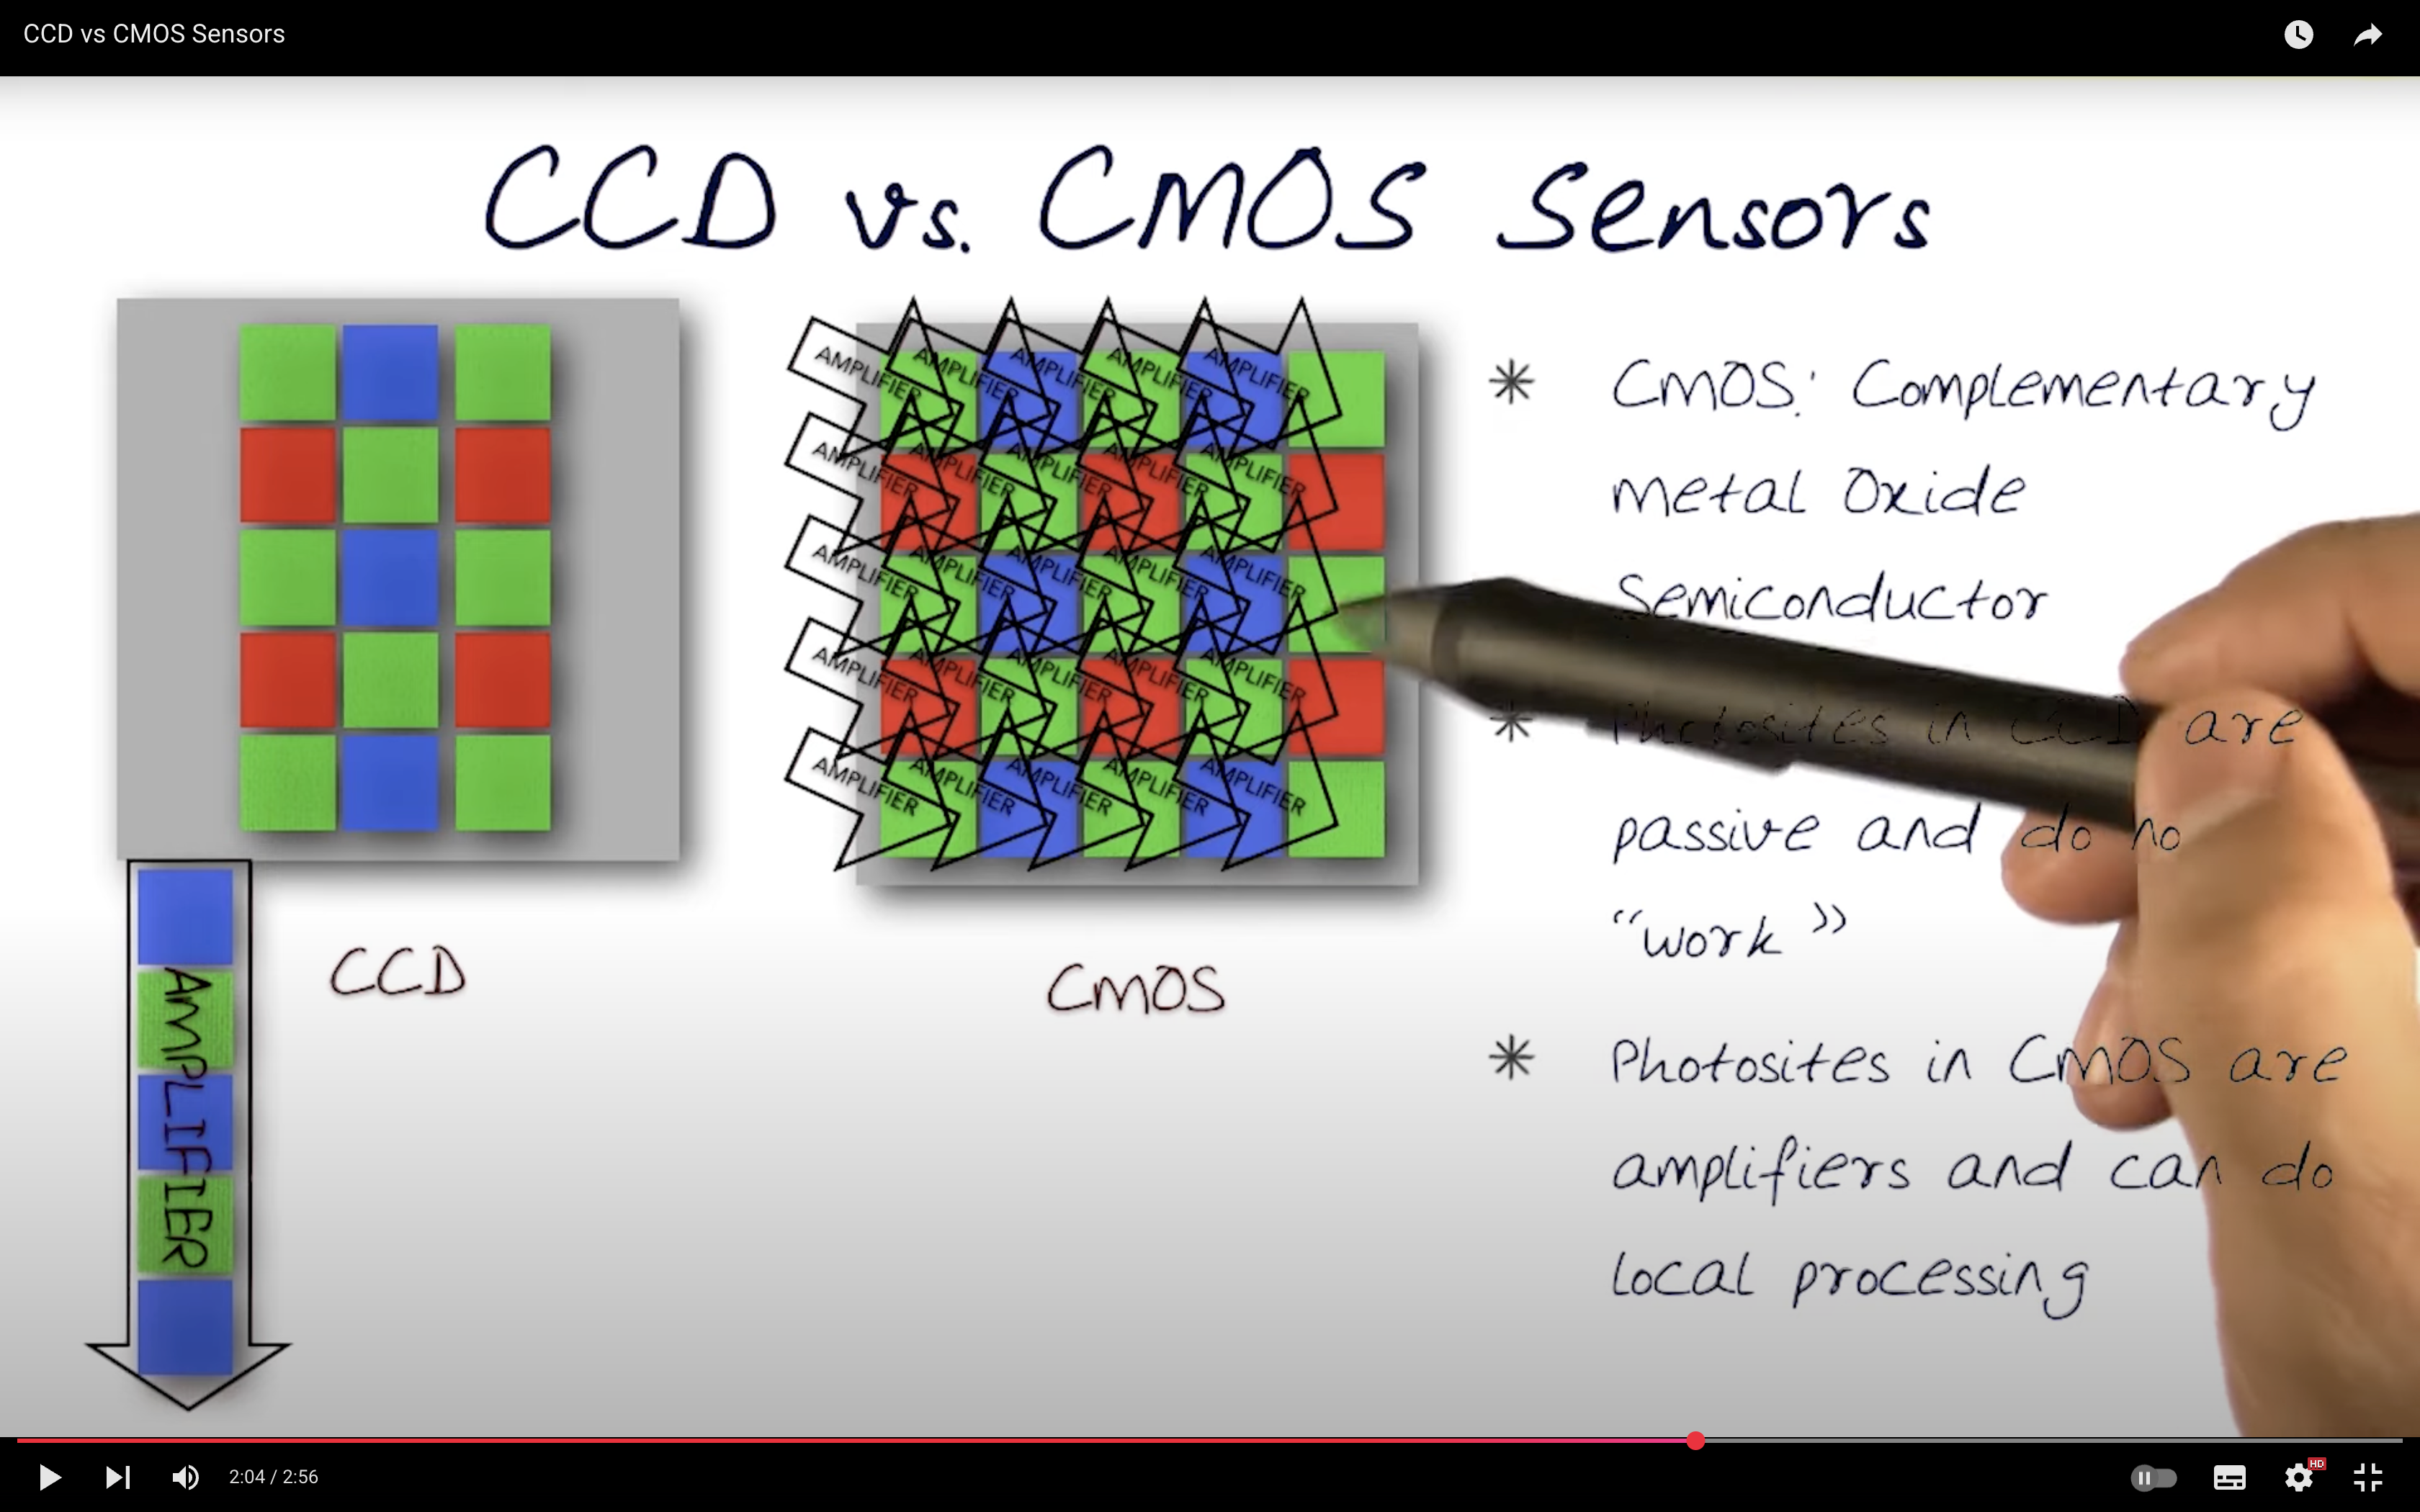 CCD vs CMOS Sensors
CCD vs. CMOS Sensors
AMPLIFIER AMPLIFIER AMPLIFIER AMPLIFIER AMPLIFIER
AMPLIFIER AMPLIFIER AMPLIFIER AMPLIFIER AMPLIFIER
AMPLIFIER AMPLIFIER AMPLIFIER AMPLIFIER AMPLIFIER
AMPLIFIER AMPLIFIER AMPLIFIER AMPLIFIER AMPLIFIER
AMPLIFIER AMPLIFIER AMPLIFIER AMPLIFIER AMPLIFIER
AMPLIFIER
CCD
CMOS
* CMOS: Complementary
Metal Oxide
Semiconductor
* Photosites in CCD are
passive and do no
“work”
* Photosites in CMOS are
amplifiers and can do
local processing
2:04 / 2:56
HD